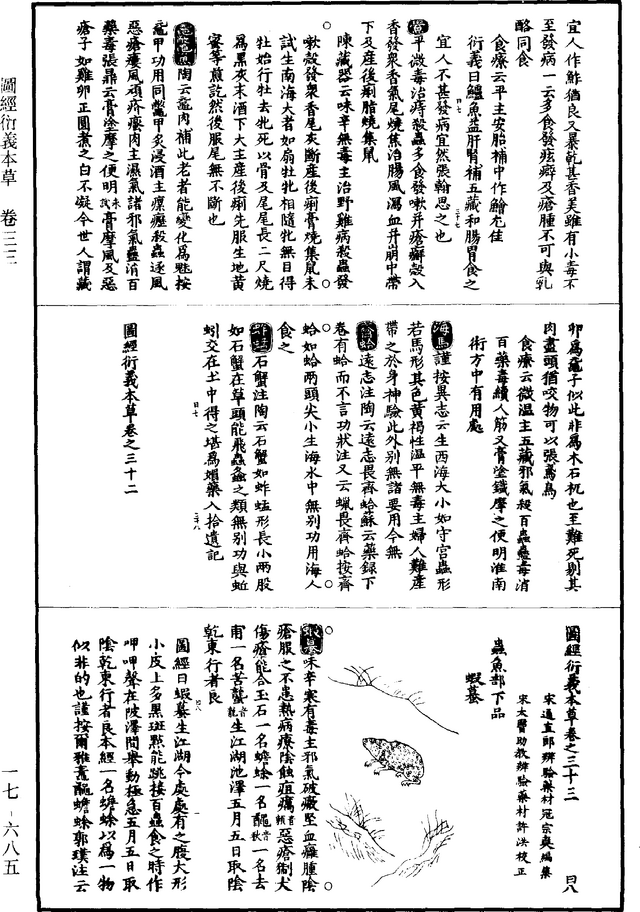 宜人作鮓猶良又暴乾甚香美雖有小毒不
至發病一云多食發痃癖及瘡腫不可與乳
酪同食
食療云平主安胎補中作鱠尤佳
衍義曰鱸魚益肝腎補五藏和腸胃食之
宜人不甚發病宜然張翰思之也
平微毒治痔殺蟲多食發嗽并瘡癬殼入
香發衆香氣尾燒焦治腸風瀉血并崩中帶
下及産後痢脂燒集鼠
陳藏器云味辛無毒主治野雞病殺蟲發
嗽殼發衆香尾灰斷産後痢膏燒集鼠未
試生南海大者如扇牝牡相隨牝無目得
牡始行牡去牝死以骨及尾尾長二尺燒
爲黑灰末酒下大主産後痢先服生地黃
蜜等煎訖然後服尾無不斷也
陶云黿肉補此老者能變化爲魅按
黿甲功用同鼈甲炙浸酒主瘰癧殺蟲逐風
惡瘡瘻風頑疥瘙肉主濕氣諸邪氣蠱消百
藥毒張鼎云膏塗摩之便明未試膏摩風及惡
瘡子如雞卵正圓煮之白不凝今世人謂藏
卵爲黿子似此非爲木石杌也至難死剔其
肉盡頭猶咬物可以張鳶鳥
食療云微溫主五藏邪氣殺百蟲蠱毒消
百藥毒續人筋又膏塗鐵摩之便明淮南
術方中有用處
海馬謹按異志云生西海大小如守宮蟲形
若馬形其色黃褐性溫平無毒主婦人難産
帶之於身神驗此外別無諸要用今無
齊蛤遠志注陶云遠志畏齊蛤蘇云藥録下
卷有蛤而不言功狀注又云蝋畏齊蛤按齊
蛤如蛤兩頭尖小生海水中無別功用海人
食之
蚱蜢石蟹注陶云石蟹如蚱蜢形長小兩股
如石蟹在草頭能飛蟲螽之類無別功與蚯
蚓交在土中得之堪爲媚藥入拾遺記
圖經衍義本草卷之三十二
圖經衍義本草卷之三十三
宋通直郎辨驗藥材寇宗奭編集
宋太醫助教辨驗藥材許洪校正
蟲魚部下品
蝦蟇
蝦蟇味辛寒有毒主邪氣破癥堅血癰腫陰
瘡服之不患熱病療陰蝕疽癘惡瘡猘犬
傷瘡能合玉石一名蟾蜍一名䵷一名去
甫一名苦蠪生江湖池澤五月五日取陰
乾東行者良
圖經曰蝦蟇生江湖今處處有之腹大形
小皮上多黑斑點能跳接百蟲食之時作
呷呷聲在陂澤間舉動極急五月五日取
陰乾東行者良本經一名蟾蜍以爲一物
似非的也謹按爾雅䵷䵶蟾蜍郭璞注云
圖經衍義本草 卷三三
一七-六八五